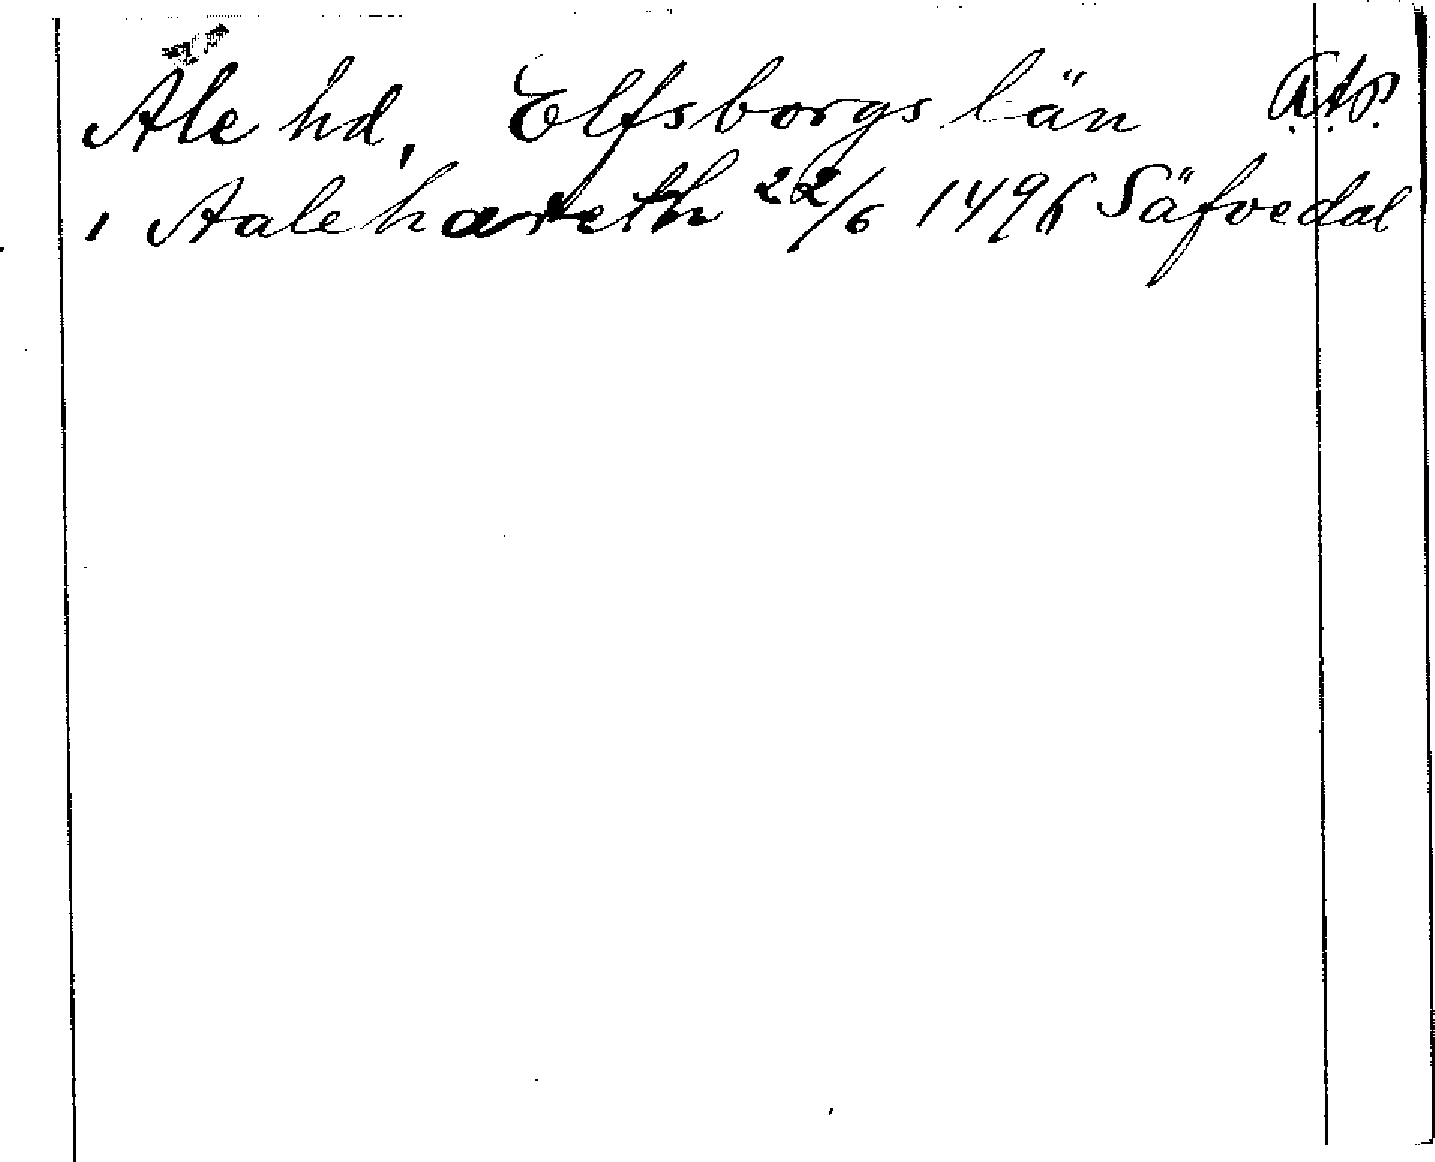 Ale hd, Elfsborgs län R.A.P.
i Aalehæreth 22/6 1496 Säfvedal